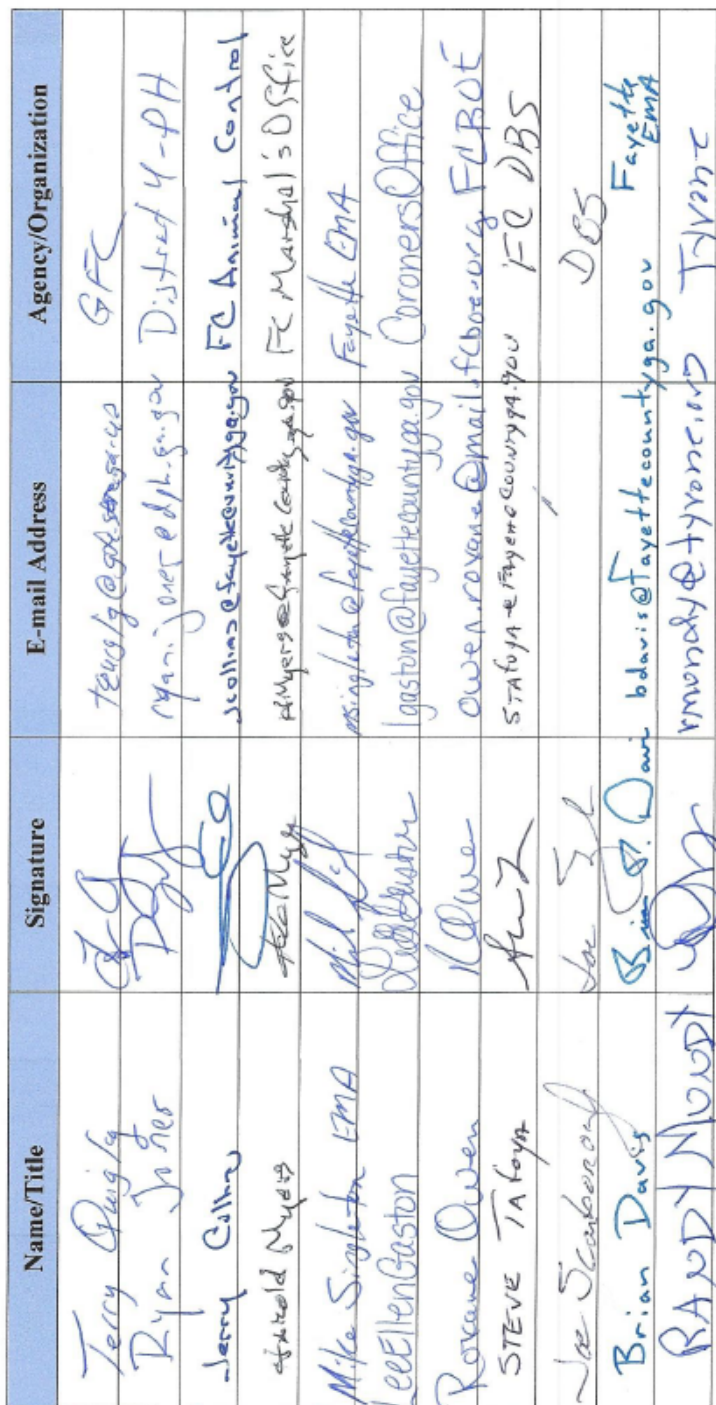 Name/Title Signature E-mail Address Agency/Organization
Terry Quigley GFC
Ryan Jones ryan.jones@dph.ga.gov District 4-PH
Jerry Collins jcollins@fayettecountyga.gov FC Animal Control
Myers FC Marshal's Office
Mike Singleton EMA msingleton@fayettecountyga.gov Fayette EMA
LeeEllenGaston lgaston@fayettecountyga.gov Coroners Office
Roxane Owen owen.roxane@mail.fcboe.org FCBOE
STEVE TAFOYA STAFOYA@fayettecountyga.gov FC DBS
Joe Scarborough DBS
Brian Davis Brian P. Davis bdavis@fayettecountyga.gov Fayette EMA
RANDY MUNDY rmundy@tyrone.org Tyrone